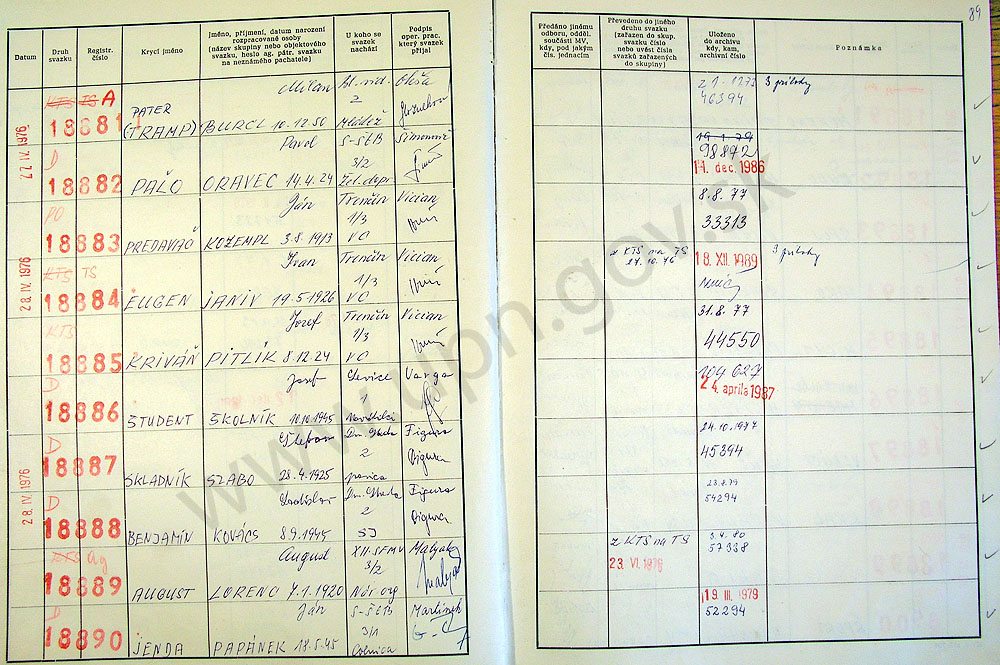 89
Datum
Druh svazku
Registr. číslo
Krycí jméno
Jméno, příjmení, datum narození
rozpracované osoby
(název skupiny nebo objektového
svazku, heslo ag. pátr. svazku
na neznámého pachatele)
U koho se
svazek
nachází
Podpis
oper. prac.
který svazek
přijal
Předáno jinému
odboru, odděl.
součásti MV,
kdy, pod jakým
čís. jednacím
Převedeno do jiného
druhu svazku
(zařazen do skup.
svazku číslo
nebo uvést čísla
svazků zařazených
do skupiny)
Uloženo
do archivu
kdy, kam,
archivní číslo
Poznámka
27. IV. 1976
KTS TS A
18881
PATER
(TRAMP)
Milan
BURCL 10.12.50
2
Mládež
46394
3 prílohy
D
18882
PAĽO
Pavol
ORAVEC 14.4.24
S-ŠtB
3/2
Simonič
19.1.79
98892
11. dec. 1986
PO
18883
PREDAVAČ
Ján
KOZEMPL 3.8.1913
Trenčín
1/3
VC
Vician
8.8.77
33313
28. IV. 1976
KTS TS
18884
EUGEN
Ivan
JANIV 19.5.1926
Trenčín
1/3
VC
Vician
z KTS na TS
18. XII. 1989
3 prílohy
KTS
18885
KRIVÁŇ
Jozef
PITLÍK 8.12.24
Trenčín
1/3
VC
Vician
31.8.77
44550
D
18886
ŠTUDENT
Jozef
ŠKOLNÍK 10.10.1945
Levice
Varga
104627
24. apríla 1987
D
18887
SKLADNÍK
Štefan
SZABO 28.4.1925
Dun. Streda
2
Figura
Figura
24.10.1977
45394
28. IV. 1976
D
18888
BENJAMÍN
Ladislav
KOVÁCS 8.9.1945
Dun. Streda
2
SJ
Figura
Figura
54294
KTS Ag
18889
AUGUST
August
LORENC 7.1.1920
XII. SFMV
3/2
Malyak
z KTS na TS
23. VI. 1976
3.4.80
57338
D
18890
JENDA
Ján
PAPÁNEK 18.5.45
S-ŠtB
3/1
Colnica
Martinek
19. III. 1979
52294
www.upn.gov.sk